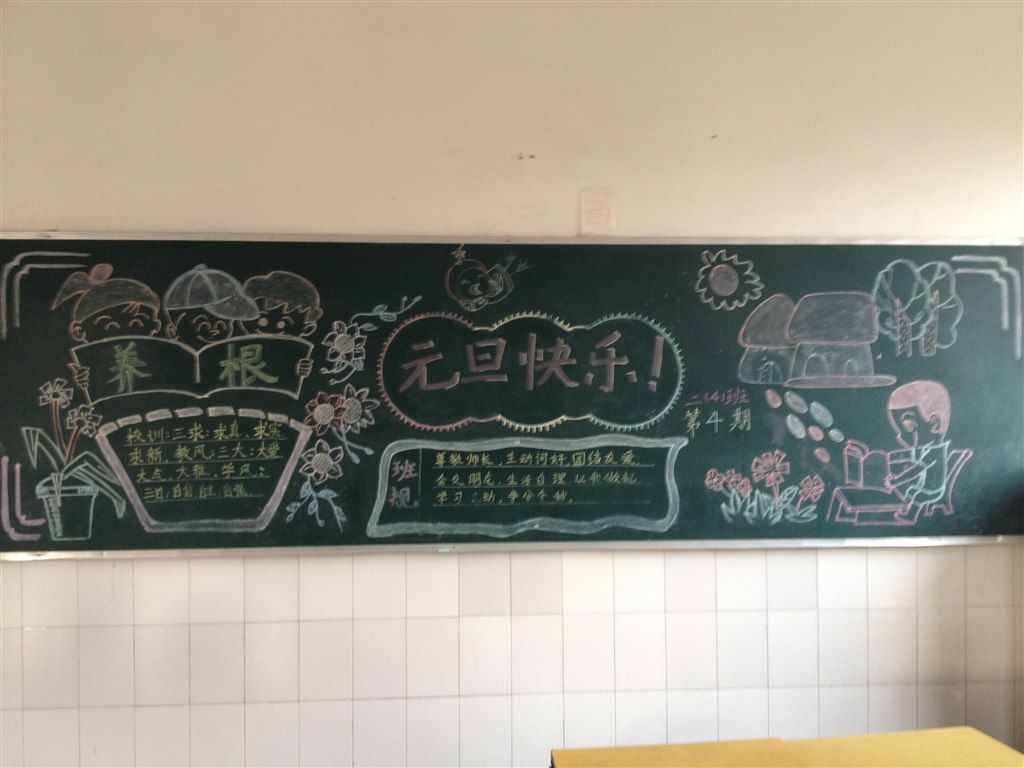 养 根
校训:三求:求真、求实
求新、教风:三大:大爱
大气、大雅、学风:
三自:自信、自主、自强
元旦快乐!
二(4)班
第4期
班规
尊敬师长,主动问好,团结友爱,
会交朋友,生活自理,从我做起
学习主动,争分夺秒。